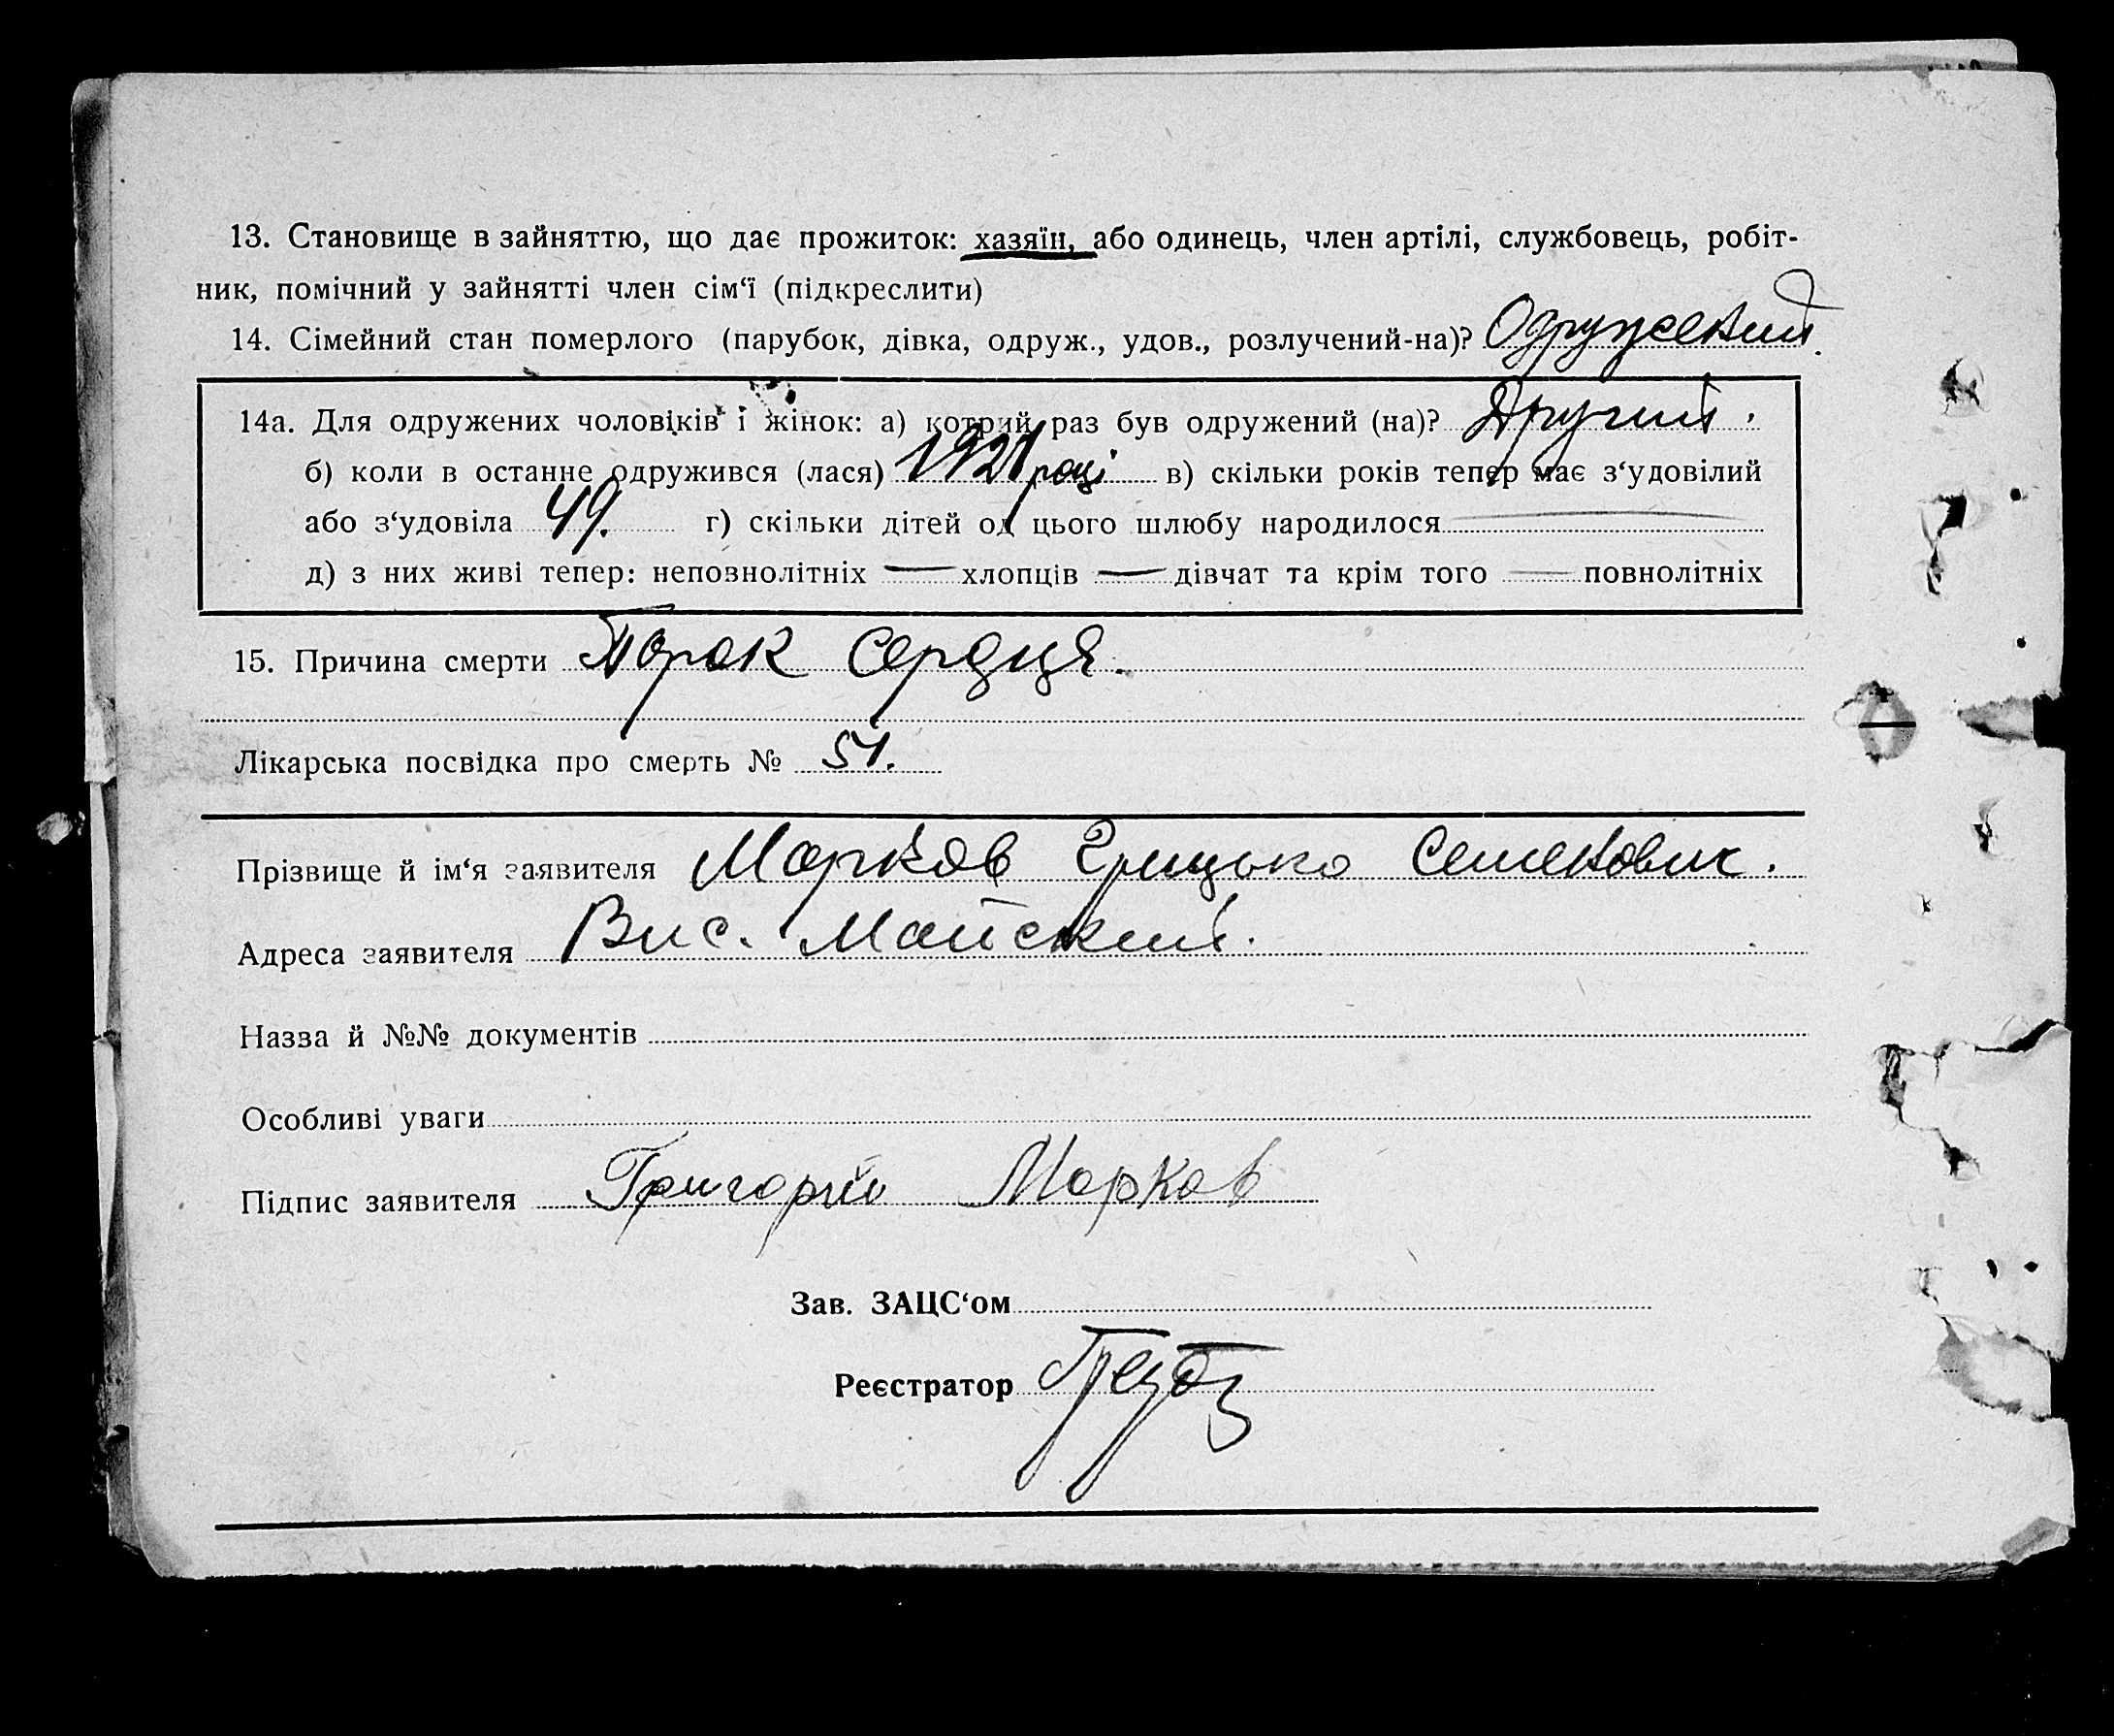 13. Становище в зайняттю, що дає прожиток: хазяїн, або одинець, член артілі, службовець, робіт-
ник, помічний у зайнятті член сім‘ї (підкреслити)
14. Сімейний стан померлого (парубок, дівка, одруж., удов., розлучений-на)? Одружений.
14а. Для одружених чоловіків і жінок: а) котрий раз був одружений (на)? Другий.
б) коли в останне одружився (лася) 1921 році в) скільки років тепер має з‘удовілий
або з‘удовіла 49. г) скільки дітей од цього шлюбу народилося —
д) з них живі тепер: неповнолітніх — хлопців — дівчат та крім того — повнолітніх
15. Причина смерти Порок сердця.
Лікарська посвідка про смерть № 51.
Прізвище й ім‘я заявителя Марков Грицько Семенович.
Адреса заявителя Вис. Майский.
Назва й №№ документів
Особливі уваги
Підпис заявителя Григорий Марков
Зав. ЗАЦС‘ом
Реєстратор